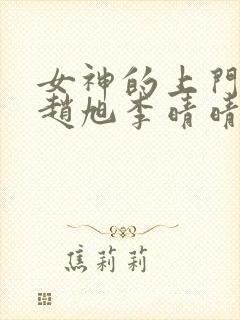 女神的上門
趙旭李晴晴
焦莉莉